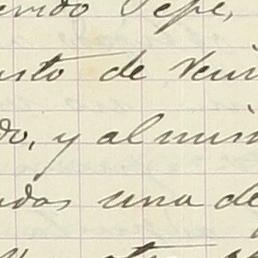 erido Pepe,
usto de veni
do, y al mis
ndas una de